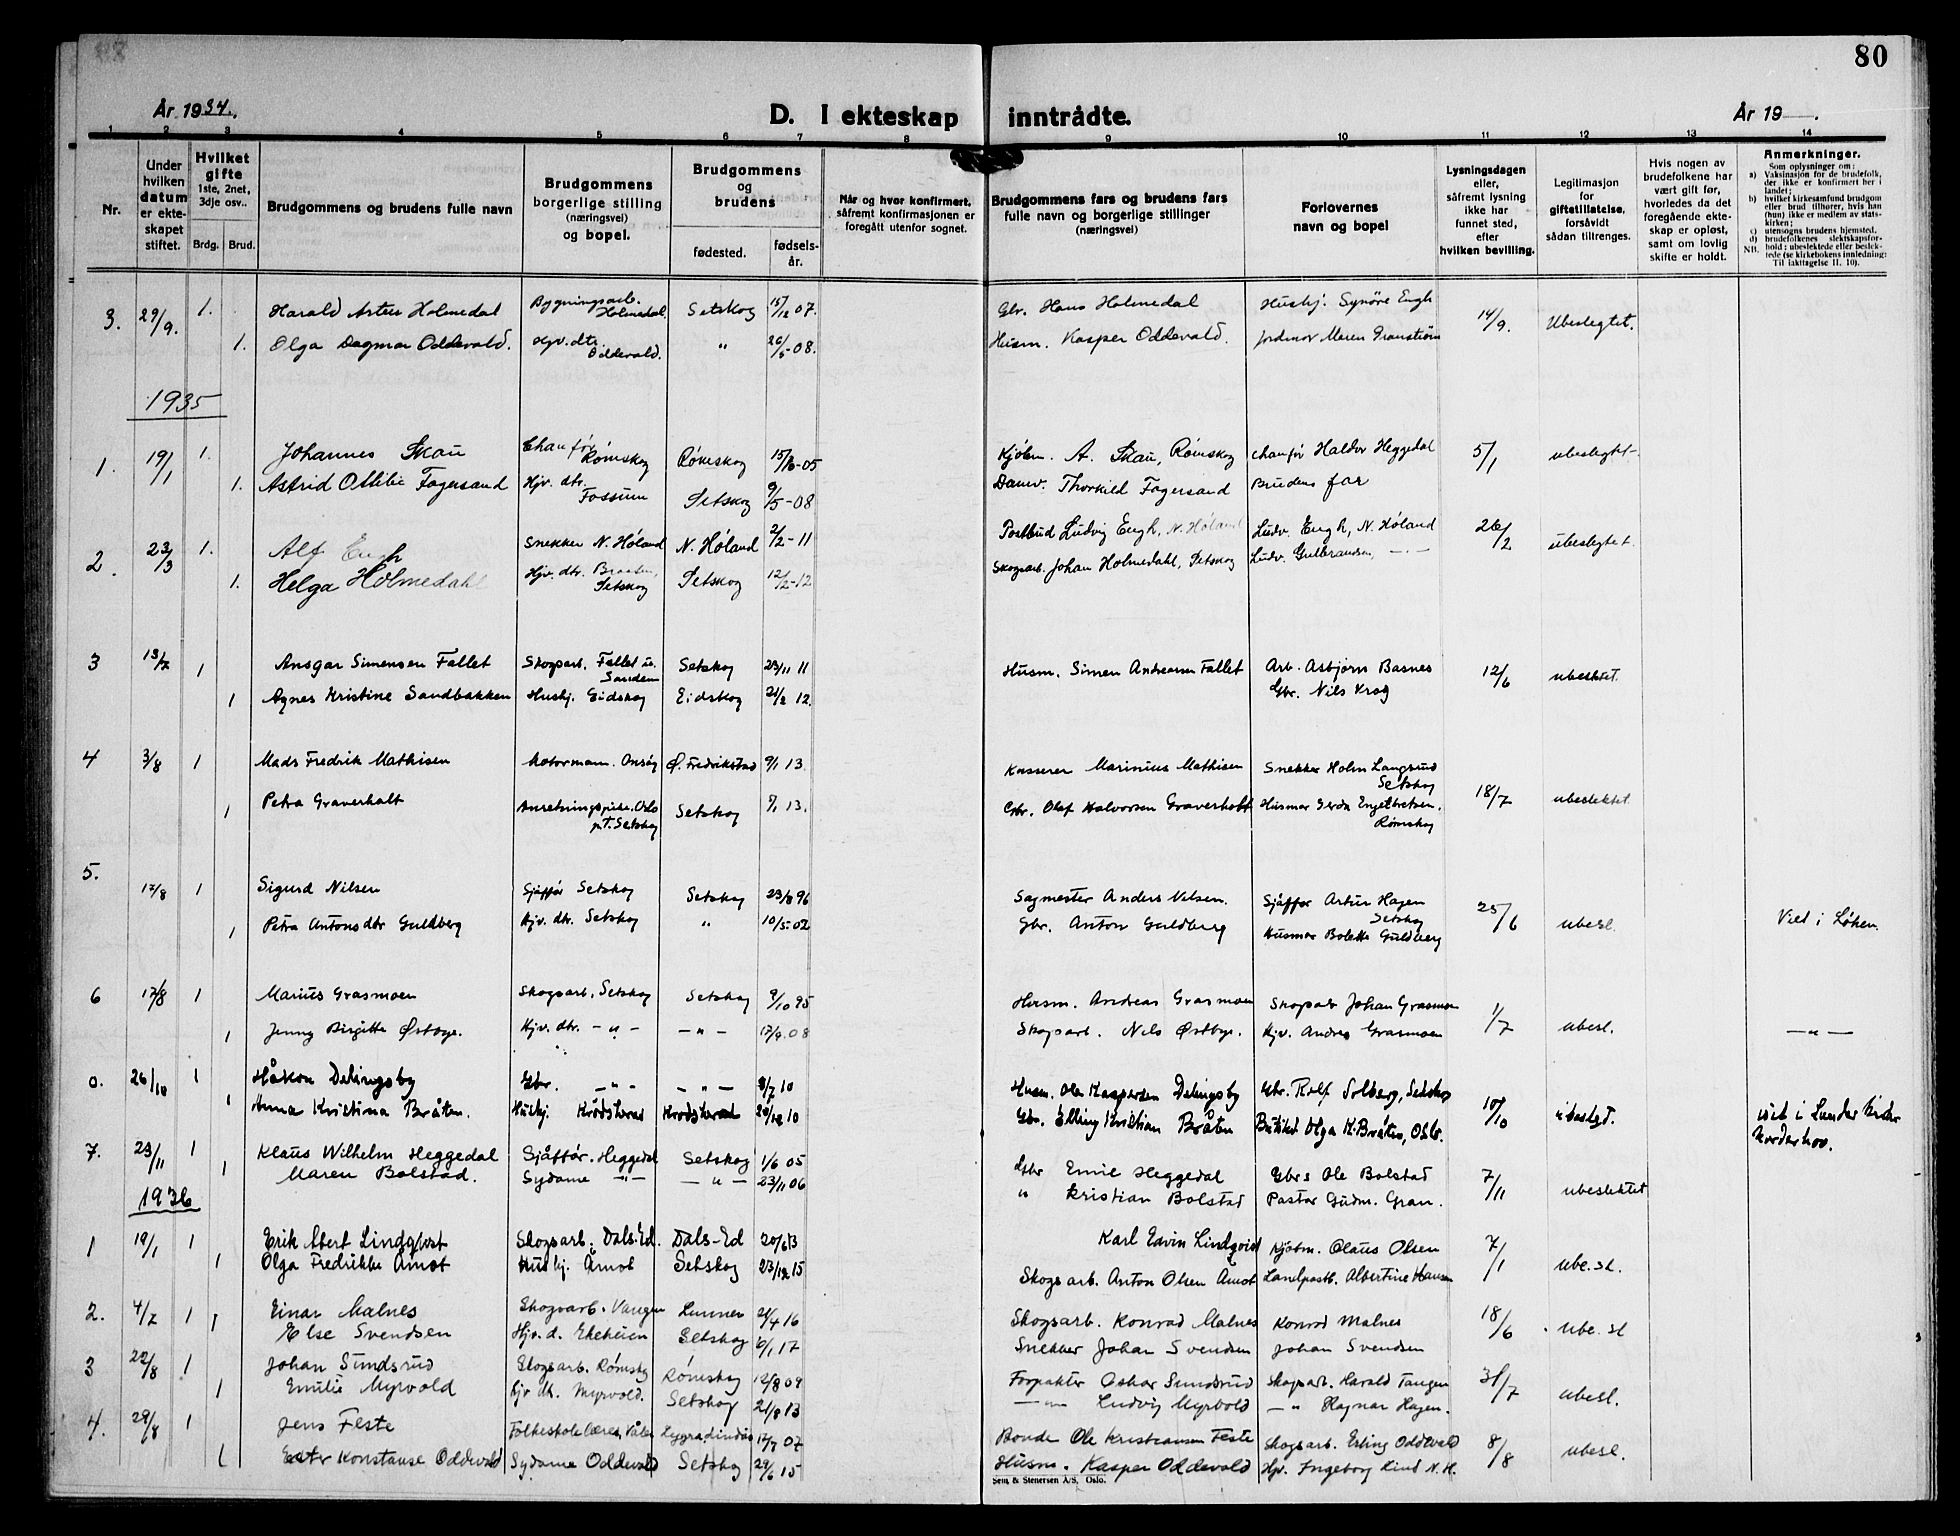 80
År 1934.
D. I ekteskap inntrådte.
År 19
1 2 3 4 5 6 7 8 9 10 11 12 13 14
Nr.
Under hvilken datum er ekte- skapet stiftet.
Hvilket gifte 1ste, 2net, 3dje osv..
Brdg. Brud.
Brudgommens og brudens fulle navn
Brudgommens borgerlige stilling (næringsvei) og bopel.
Brudgommens og brudens
fødested.
fødsels- år.
Når og hvor konfirmert, såfremt konfirmasjonen er foregått utenfor sognet.
Brudgommens fars og brudens fars fulle navn og borgerlige stillinger (næringsvei)
Forlovernes navn og bopel
Lysningsdagen eller, såfremt lysning ikke har funnet sted, efter hvilken bevilling.
Legitimasjon for giftetillatelse, forsåvidt sådan tiltrenges.
Hvis nogen av brudefolkene har vært gift før, hvorledes da det foregående ekte- skap er opløst, samt om lovlig skifte er holdt.
Anmerkninger.
Som oplysninger om:
a) Vaksinasjon for de brudefolk, der ikke er konfirmert her i landet;
b) hvilket kirkesamfund brudgom eller brud tilhører, hvis han (hun) ikke er medlem av stats- kirken;
c) utensogns brudens hjemsted.
d) brudefolkenes slektskapsfor- hold: ubeslektede eller beslek- tede (se kirkebokens innledning: Til iakttagelse II. 10).
NB.
3. 29/9. 1. Harald Artur Holmedal Bygningsarb. Holmedal Setskog 15/12 07. Gbr. Hans Holmedal Hushj. Synøve Engh 14/9. Ubeslegtet.
1. Olga Dagmar Oddevald. Hjv. dtr. Oddevald. " 26/5-08. Husm. Kasper Oddevald. Jordmor Maren Granstrøm
1935
1. 19/1 1. Johannes Skau Chauffør Rømskog Rømskog 15/10-05 Kjøbm. A. Skau, Rømskog Chauffør Haldor Heggedal 5/1 ubeslegtet
1. Astrid Ottilie Fagersand Hjv. dtr. Fossum Setskog 9/5-08 Thorkild Fagersand Brudens far
2. 23/3 1. Alf Engh Snekker N. Høland N. Høland 2/2-11 Postbud Ludvig Engh, N. Høland Ludv. Engh, N. Høland 26/2 ubeslegtet.
1. Helga Holmedahl Hjv. dtr. Braaten, Setskog Setskog 12/2-12 Skogsarb. Johan Holmedahl, Setskog Ludv. Gulbrandsen, - " -
3 13/7 1 Ansgar Simensen Fallet Skogsarb. Fallet u. Sanden Setskog 23/11 11 Husm. Simen Andreassen Fallet Arb. Asbjørn Basnes 12/6 ubeslektet.
1 Agnes Kristine Sandbakken Hushj. Eidskog Eidskog 21/2 12. Gbr. Nils Krog
4 3/8 1 Mads Fredrik Mathisen Motormann. Onsøy Ø. Fredrikstad 9/1 13. Kasserer Marinius Mathisen Snekker Holm Langsrud Setskog 18/7 ubeslektet
1 Petra Graverholt Anretningspike. Oslo p.t. Setskog Setskog 9/1 13. Gbr. Olaf Halvorsen Graverholt Husmor Gerda Engebretsen. Rømskog
5. 17/8 1 Sigurd Nilsen Sjåffør Setskog Setskog 23/8 96 Sagmester Anders Nilsen. Sjåffør Artur Hagen Setskog 25/6 ubesl. Viet i Løken.
1 Petra Antonsdtr Guldberg Hjv. dtr. Setskog " 10/5-02 Gbr. Anton Guldberg Husmor Bolette Guldberg
6 17/8 1 Marius Grasmoen Skogsarb. Setskog Setskog 9/10 95 Husm. Andreas Grasmoen Skogsarb Johan Grasmoen 1/7 ubesl. — " —
1 Jenny Birgitte Østbye. Hjv. dtr. - " - - " - 17/9. 08 Skogsarb. Nils Østbye. Hjv. Andrea Grasmoen
0. 26/10 1 Håkon Delingsby Gbr. - " - - " - 8/7 10 Husm. Ole Kaspersen Delingsby Gbr. Rolf Solberg, Setskog 10/10 ubeslgt. viet i Lunder kirke Norderhov.
1 Anna Kristina Bråten. Hushj. Krødsherad Krødsherad 20/12 10 Gbr. Elling Kristian Bråten Olga K. Bråten, Oslo.
7. 23/11 1 Klaus Wilhelm Heggedal Sjåffør. Heggedal Setskog 1/6 05 Gbr Emil Heggedal Gbrs Ole Bolstad 7/11 ubeslektet
1 Maren Bolstad. Sydame - " - - " - 23/11 06 " Kristian Bolstad Pastor Gudm. Gran.
1936
1 19/1 1 Erik Albert Lindqvist Skogsarb. Dals-Ed. Dals-Ed 20/6 13 Karl Edvin Lindqvist Kjøbm. Olaus Olsen 7/1 ube.sl.
1 Olga Fredrikke Åmot Hushj. Åmot Setskog 23/12 15 Skogsarb. Anton Olsen Åmot Landpostb. Albertine Hansen
2. 4/7 1 Einar Malnes Skogsarb. Vangen Lunner 21/4 16 Skogsarb. Konrad Malnes Konrad Malnes 18/6 ube. sl
1 Else Svendsen Hjv. d. Ekeheien Setskog 6/1 17 Snekker Johan Svendsen Johan Svendsen
3 22/8 1 Johan Sundsrud Skogsarb. Rømskog Rømskog 12/8 09 Forpakter Oskar Sundsrud Skogsarb. Harald Tangen 31/7 ubesl.
1 Emilie Myrvold Hjv dt. Myrvold. Setskog 21/8 13 — " — Ludvig Myrvold — " Ragnar Hagen.
4. 29/8 1 Jens Feste Folkeskolelærer, Våler 12/7 07 Bonde Ole Kristiansen Feste Skogsarb. Erling Oddevald 8/8 ubesl.
1 Ester Konstanse Oddevald Sydame Oddevald Setskog 29/6 15 Husm. Kasper Oddevald Hjv. Ingeborg Lind N. H.
Sem & Stenersen A/S, Oslo.